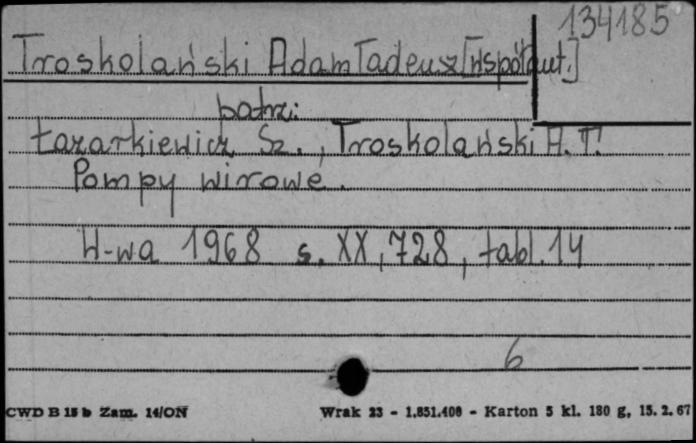 134185
Troskolański Adam Tadeusz [współaut.]
patrz:
Łazarkiewicz Sz., Troskolański A. T.
Pompy wirowe.
W-wa 1968 s. XX, 728, tabl. 14
6
CWD B 15 b Zam. 14/ON Wrak 23 - 1.851.400 - Karton 5 kl. 180 g, 15. 2. 67